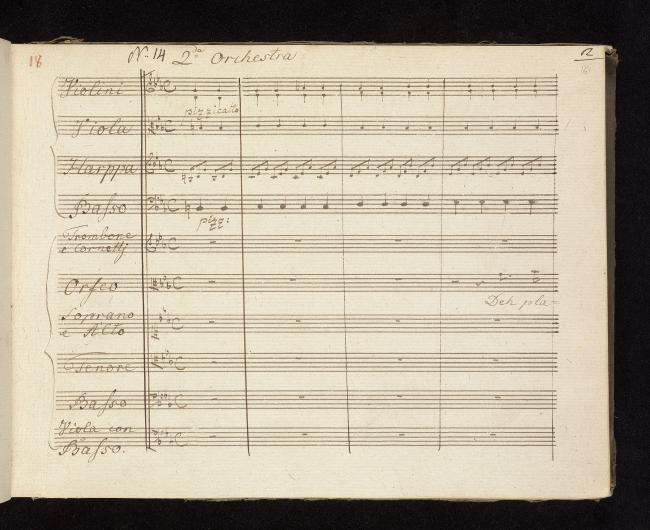 18
N. 14 2da Orchestra
Violini
pizzicatto
Viola
Harppa
Basso
pizz:
Trombone
e Cornetti
Orfeo
Deh pla=
Soprano
e Alto
Tenore
Basso
Viola con
Basso.